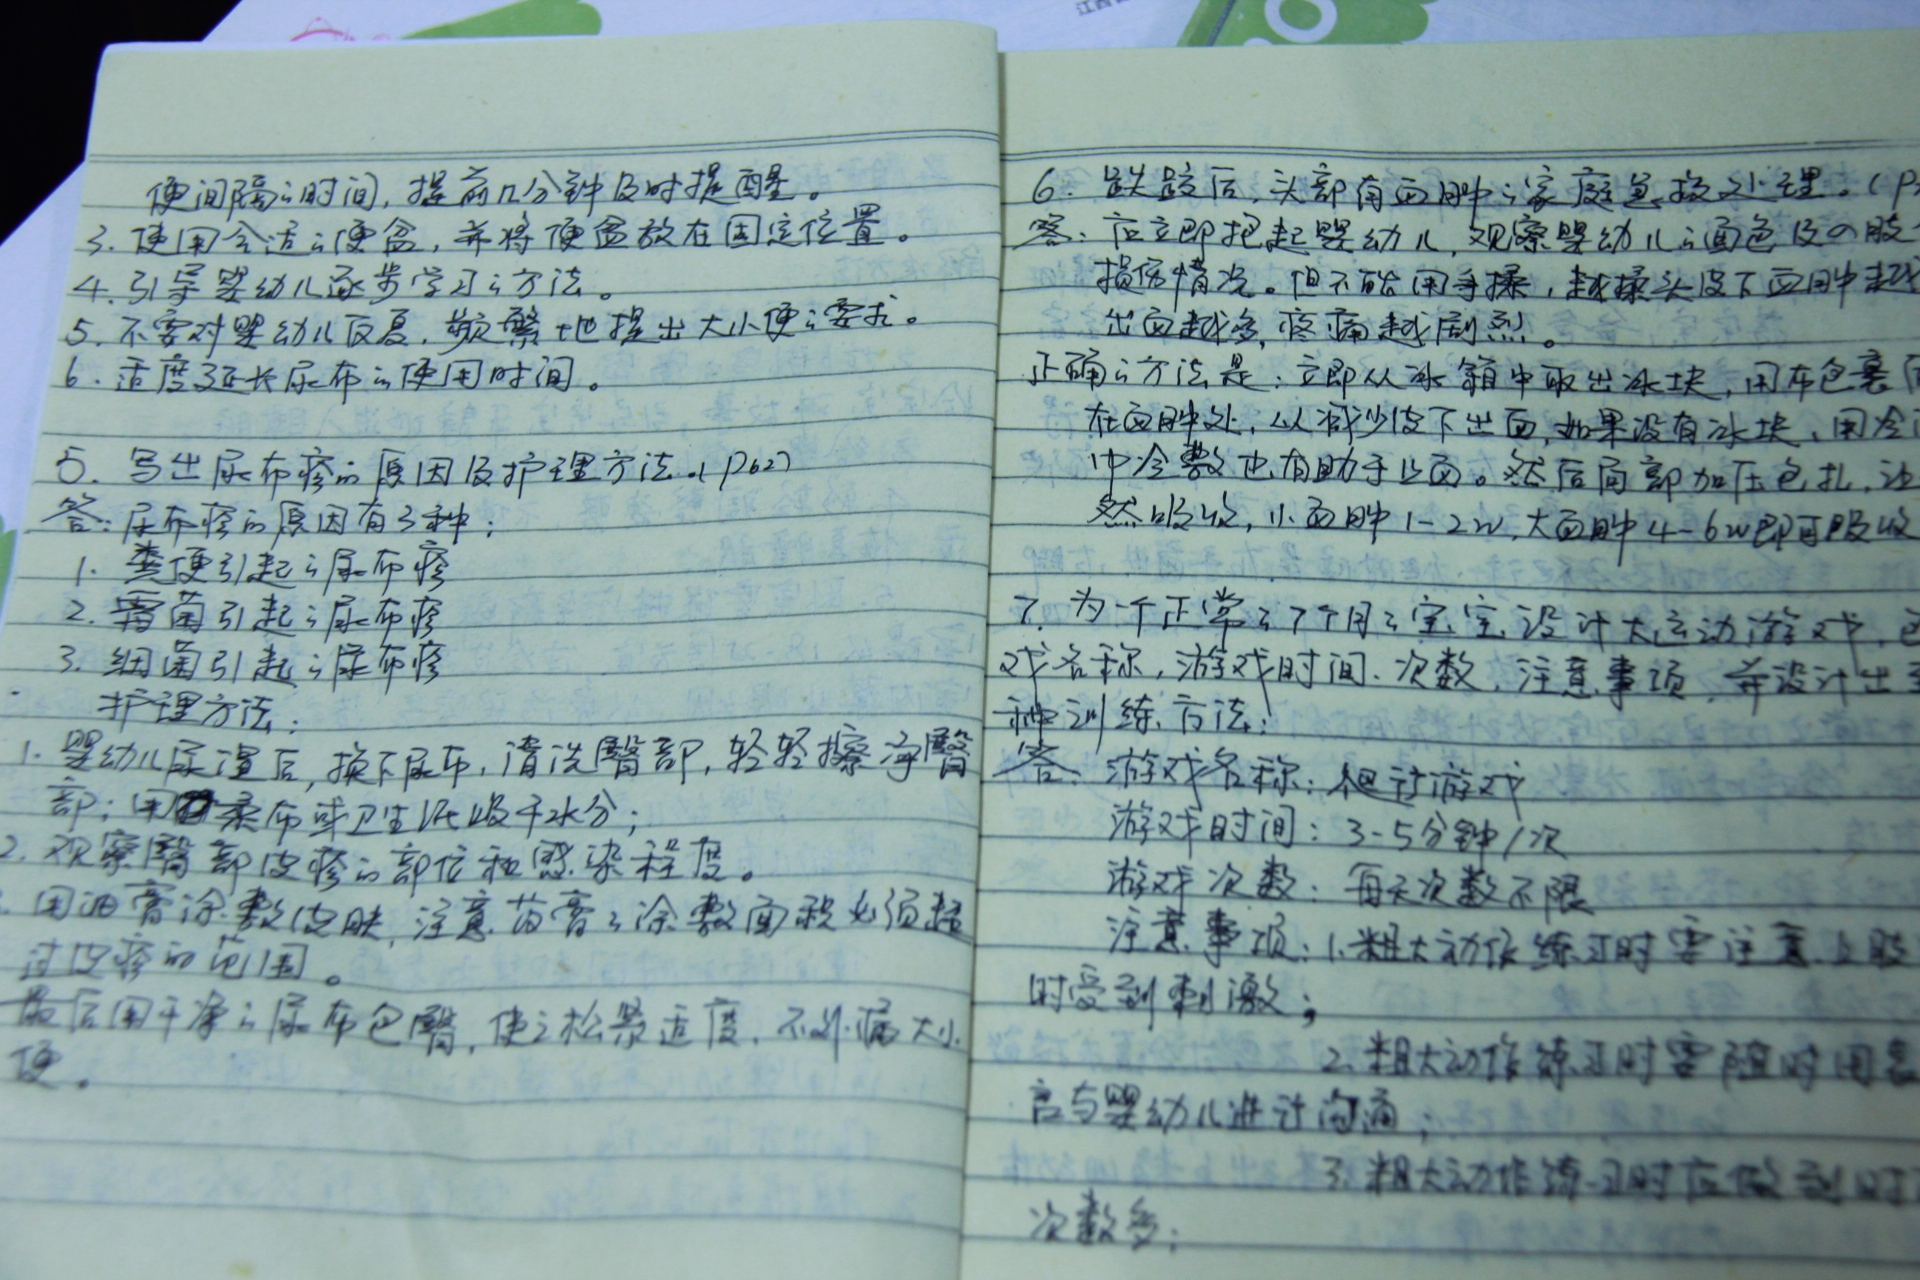 便间隔之时间，提前几分钟及时提醒。
3. 使用合适之便盆，并将便盆放在固定位置。
4. 引导婴幼儿逐步学习之方法。
5. 不要对婴幼儿反复，频繁地提出大小便之要求。
6. 适度延长尿布之使用时间。
5. 写出尿布疹的原因及护理方法。(P262)
答：尿布疹的原因有3种：
1. 粪便引起之尿布疹
2. 霉菌引起之尿布疹
3. 细菌引起之尿布疹
护理方法：
1. 婴幼儿尿湿后，换下尿布，清洗臀部，轻轻擦净臀
部；用柔布或卫生纸吸干水分；
2. 观察臀部皮疹的部位和感染程度。
用油膏涂敷皮肤，注意药膏之涂敷面积必须超
过皮疹的范围。
最后用干净之尿布包臀，使之松紧适度，不外漏大小
便。
6. 跌跤后，头部有血肿之家庭急救处理。(P
答：应立即抱起婴幼儿，观察婴幼儿之面色及四肢
损伤情况。但不能用手揉，越揉头皮下血肿越
出血越多，疼痛越剧烈。
正确之方法是：立即从冰箱中取出冰块，用布包裹
在血肿处，以减少皮下出血，如果没有冰块，用冷
巾冷敷也有助于止血。然后局部加压包扎，让
然吸收，小血肿1-2w，大血肿4-6w即可吸收
7. 为一个正常之7个月之宝宝设计大运动游戏，包
戏名称，游戏时间、次数，注意事项，并设计出
种训练方法：
答：游戏名称：爬行游戏
游戏时间：3-5分钟/次
游戏次数：每天次数不限
注意事项：1.粗大动作练习时要注意上肢
时受到刺激；
2.粗大动作练习时要随时用
言与婴幼儿进行沟通；
3.粗大动作练习时应做到时
次数多；